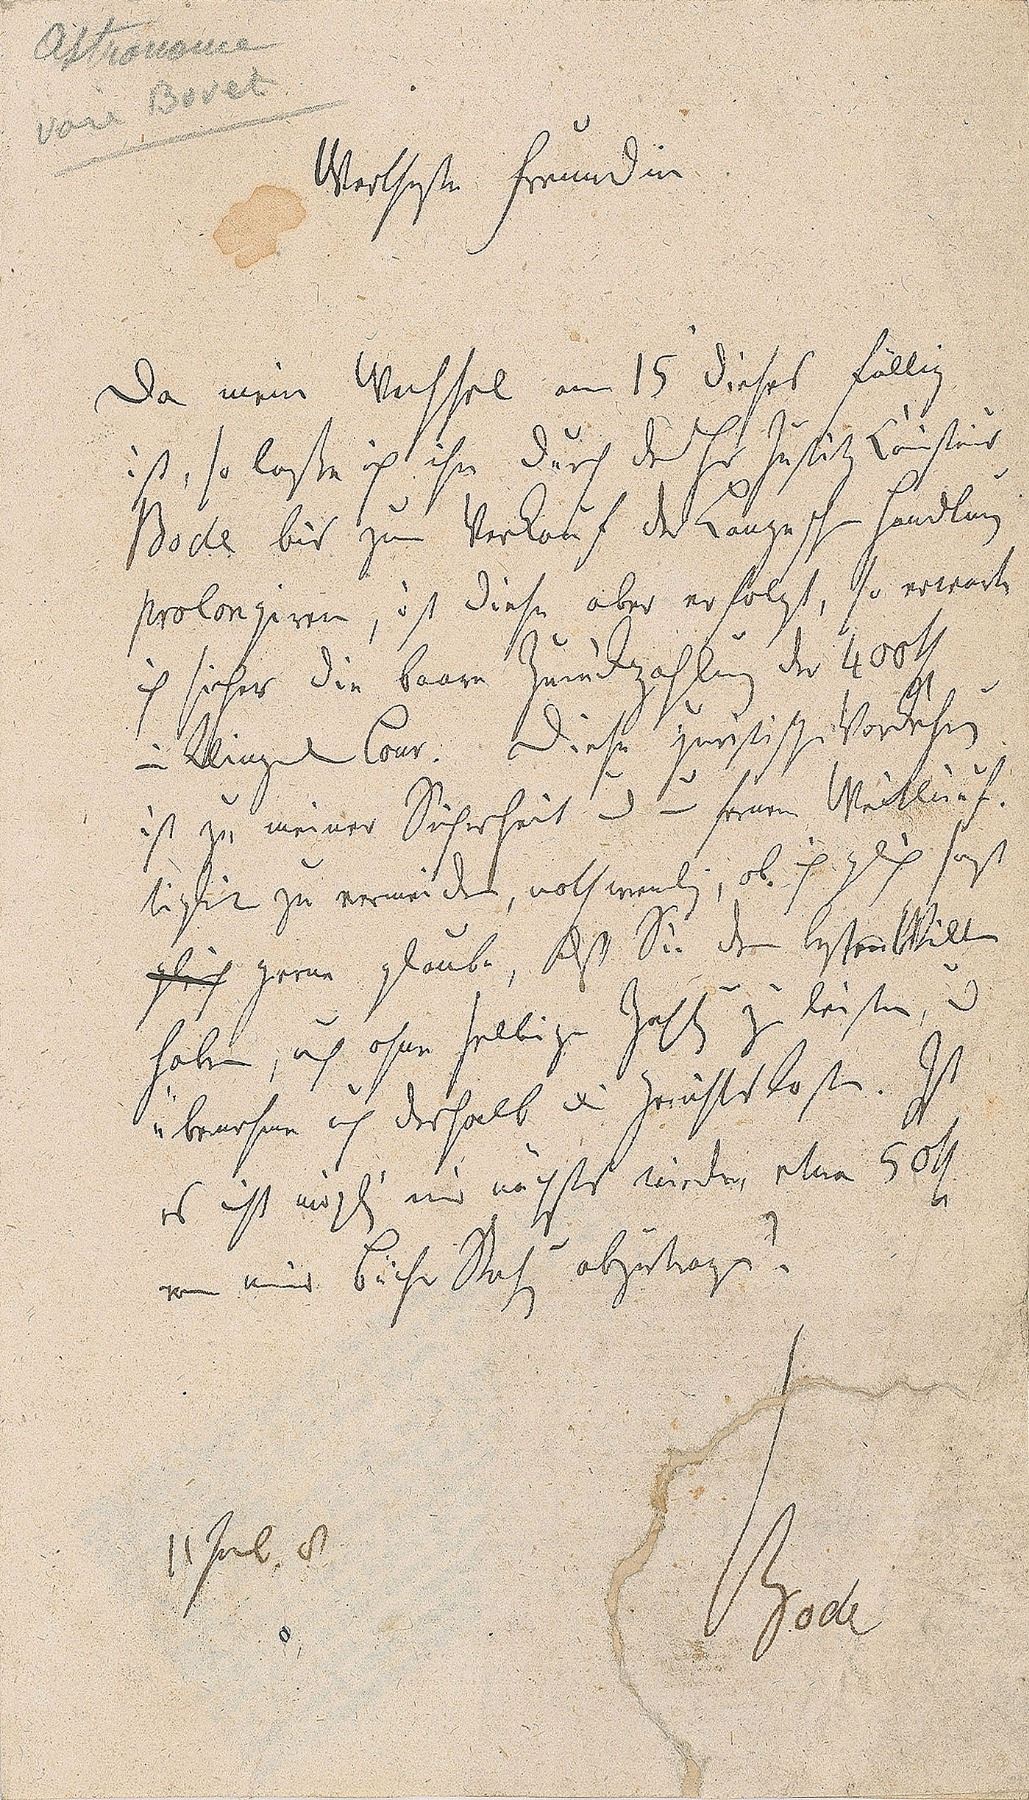 Astronome
voir Bovet
Wertheste Freundin
Da mein Wechsel am 15 dieses fällig
ist, so laße ich ihn durch den Hr Justitz
Bode bis zum Verkauf der Langeschen Handlung
prolongiren, ist diese aber erfolgt, so erwarte
ich sicher die baare Zurückzahlung der 400
in klingend Cour. Diese juristische Vorkehrung
ist zu meiner Sicherheit u um fernere Weitläuf-
tigkeit zu vermeiden, nothwendig, ob ich gleich sonst
gleich gerne glaube, daß Sie den besten Willen
haben, auch ohne selbige Zahlung zu leisten, u
übernehme ich deshalb die Gerichtskosten. Ist
es nicht mögl mir nächstens wieder etwa 50
von mein abzutragen?
11 Jul. 8
Bode